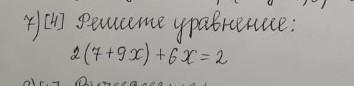 7) [4] Решите уравнение:
2(7+9x)+6x=2